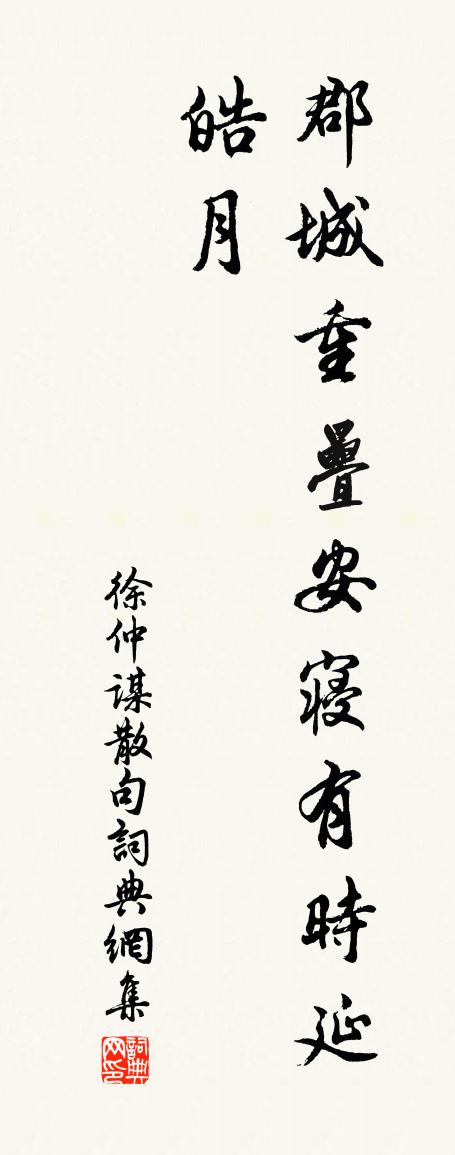 郡城重疊安寢有時延
皓月
徐仲謀散句詞典網集
詞典网印